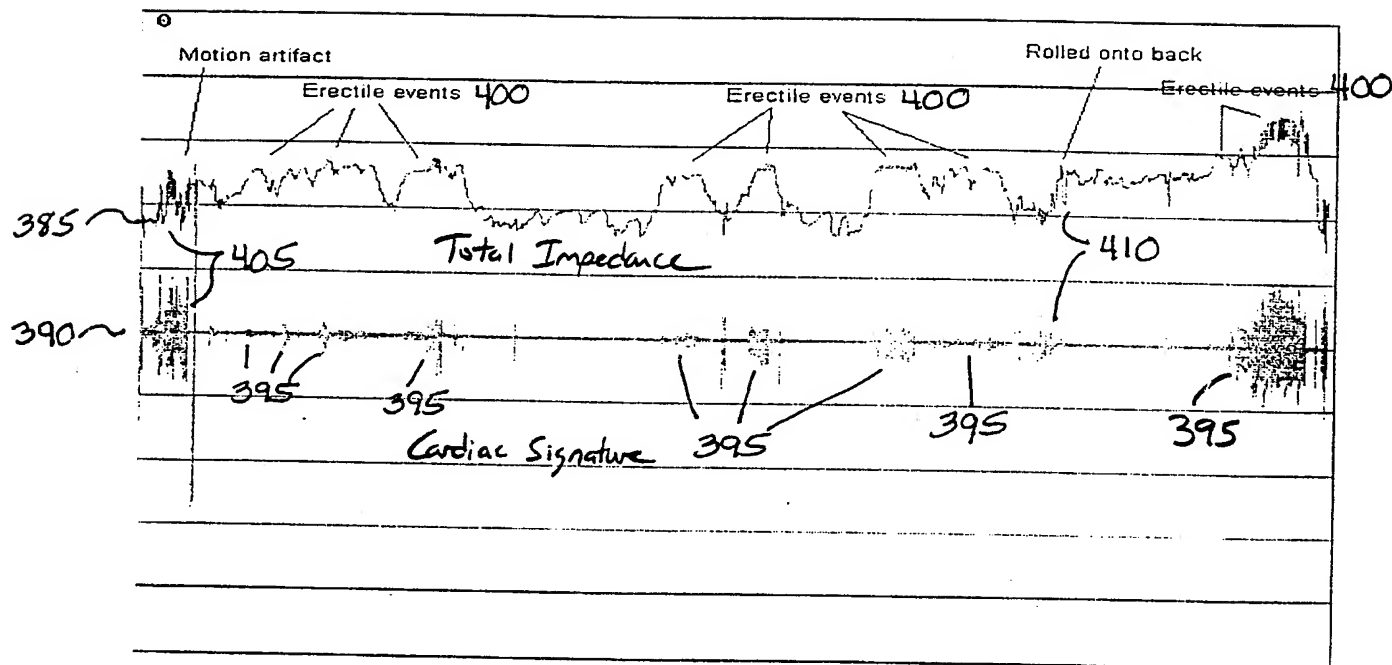 Motion artifact
Rolled onto back
Erectile events 400
Erectile events 400
Erectile events 400
385
405
Total Impedance
410
390
395
395
395
395
395
Cardiac Signature